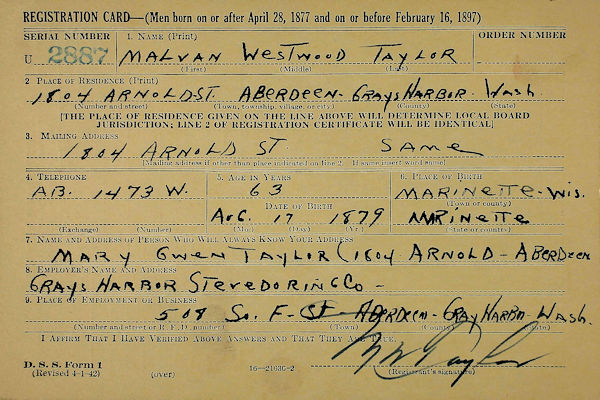 REGISTRATION CARD—(Men born on or after April 28, 1877 and on or before February 16, 1897)
SERIAL NUMBER 1. NAME (Print) ORDER NUMBER
U 2887 MALVAN WESTWOOD TAYLOR
(First) (Middle) (Last)
2. PLACE OF RESIDENCE (Print)
1804 ARNOLD ST. ABERDEEN - GRAYS HARBOR WASH.
(Number and street) (Town, township, village, or city) (County) (State)
[THE PLACE OF RESIDENCE GIVEN ON THE LINE ABOVE WILL DETERMINE LOCAL BOARD
JURISDICTION; LINE 2 OF REGISTRATION CERTIFICATE WILL BE IDENTICAL]
3. MAILING ADDRESS
1804 ARNOLD ST SAME
[Mailing address if other than place indicated on line 2. If same insert word same]
4. TELEPHONE 5. AGE IN YEARS 6. PLACE OF BIRTH
AB. 1473 W. 63 MARINETTE - WIS.
DATE OF BIRTH (Town or county)
AUG. 17 1879 MARINETTE
(Exchange) (Number) (Mo.) (Day) (Yr.) (State or country)
7. NAME AND ADDRESS OF PERSON WHO WILL ALWAYS KNOW YOUR ADDRESS
MARY GWEN TAYLOR (1804 ARNOLD - ABERDEEN
8. EMPLOYER'S NAME AND ADDRESS
GRAYS HARBOR STEVEDORING CO -
9. PLACE OF EMPLOYMENT OR BUSINESS
508 SO. F - ST ABERDEEN - GRAY HARBR - WASH.
(Number and street or R. F. D. number) (Town) (County) (State)
I AFFIRM THAT I HAVE VERIFIED ABOVE ANSWERS AND THAT THEY ARE TRUE.
M W Taylor
D. S. S. Form 1
(Revised 4-1-42) (over) 16—21630-2 (Registrant's signature)